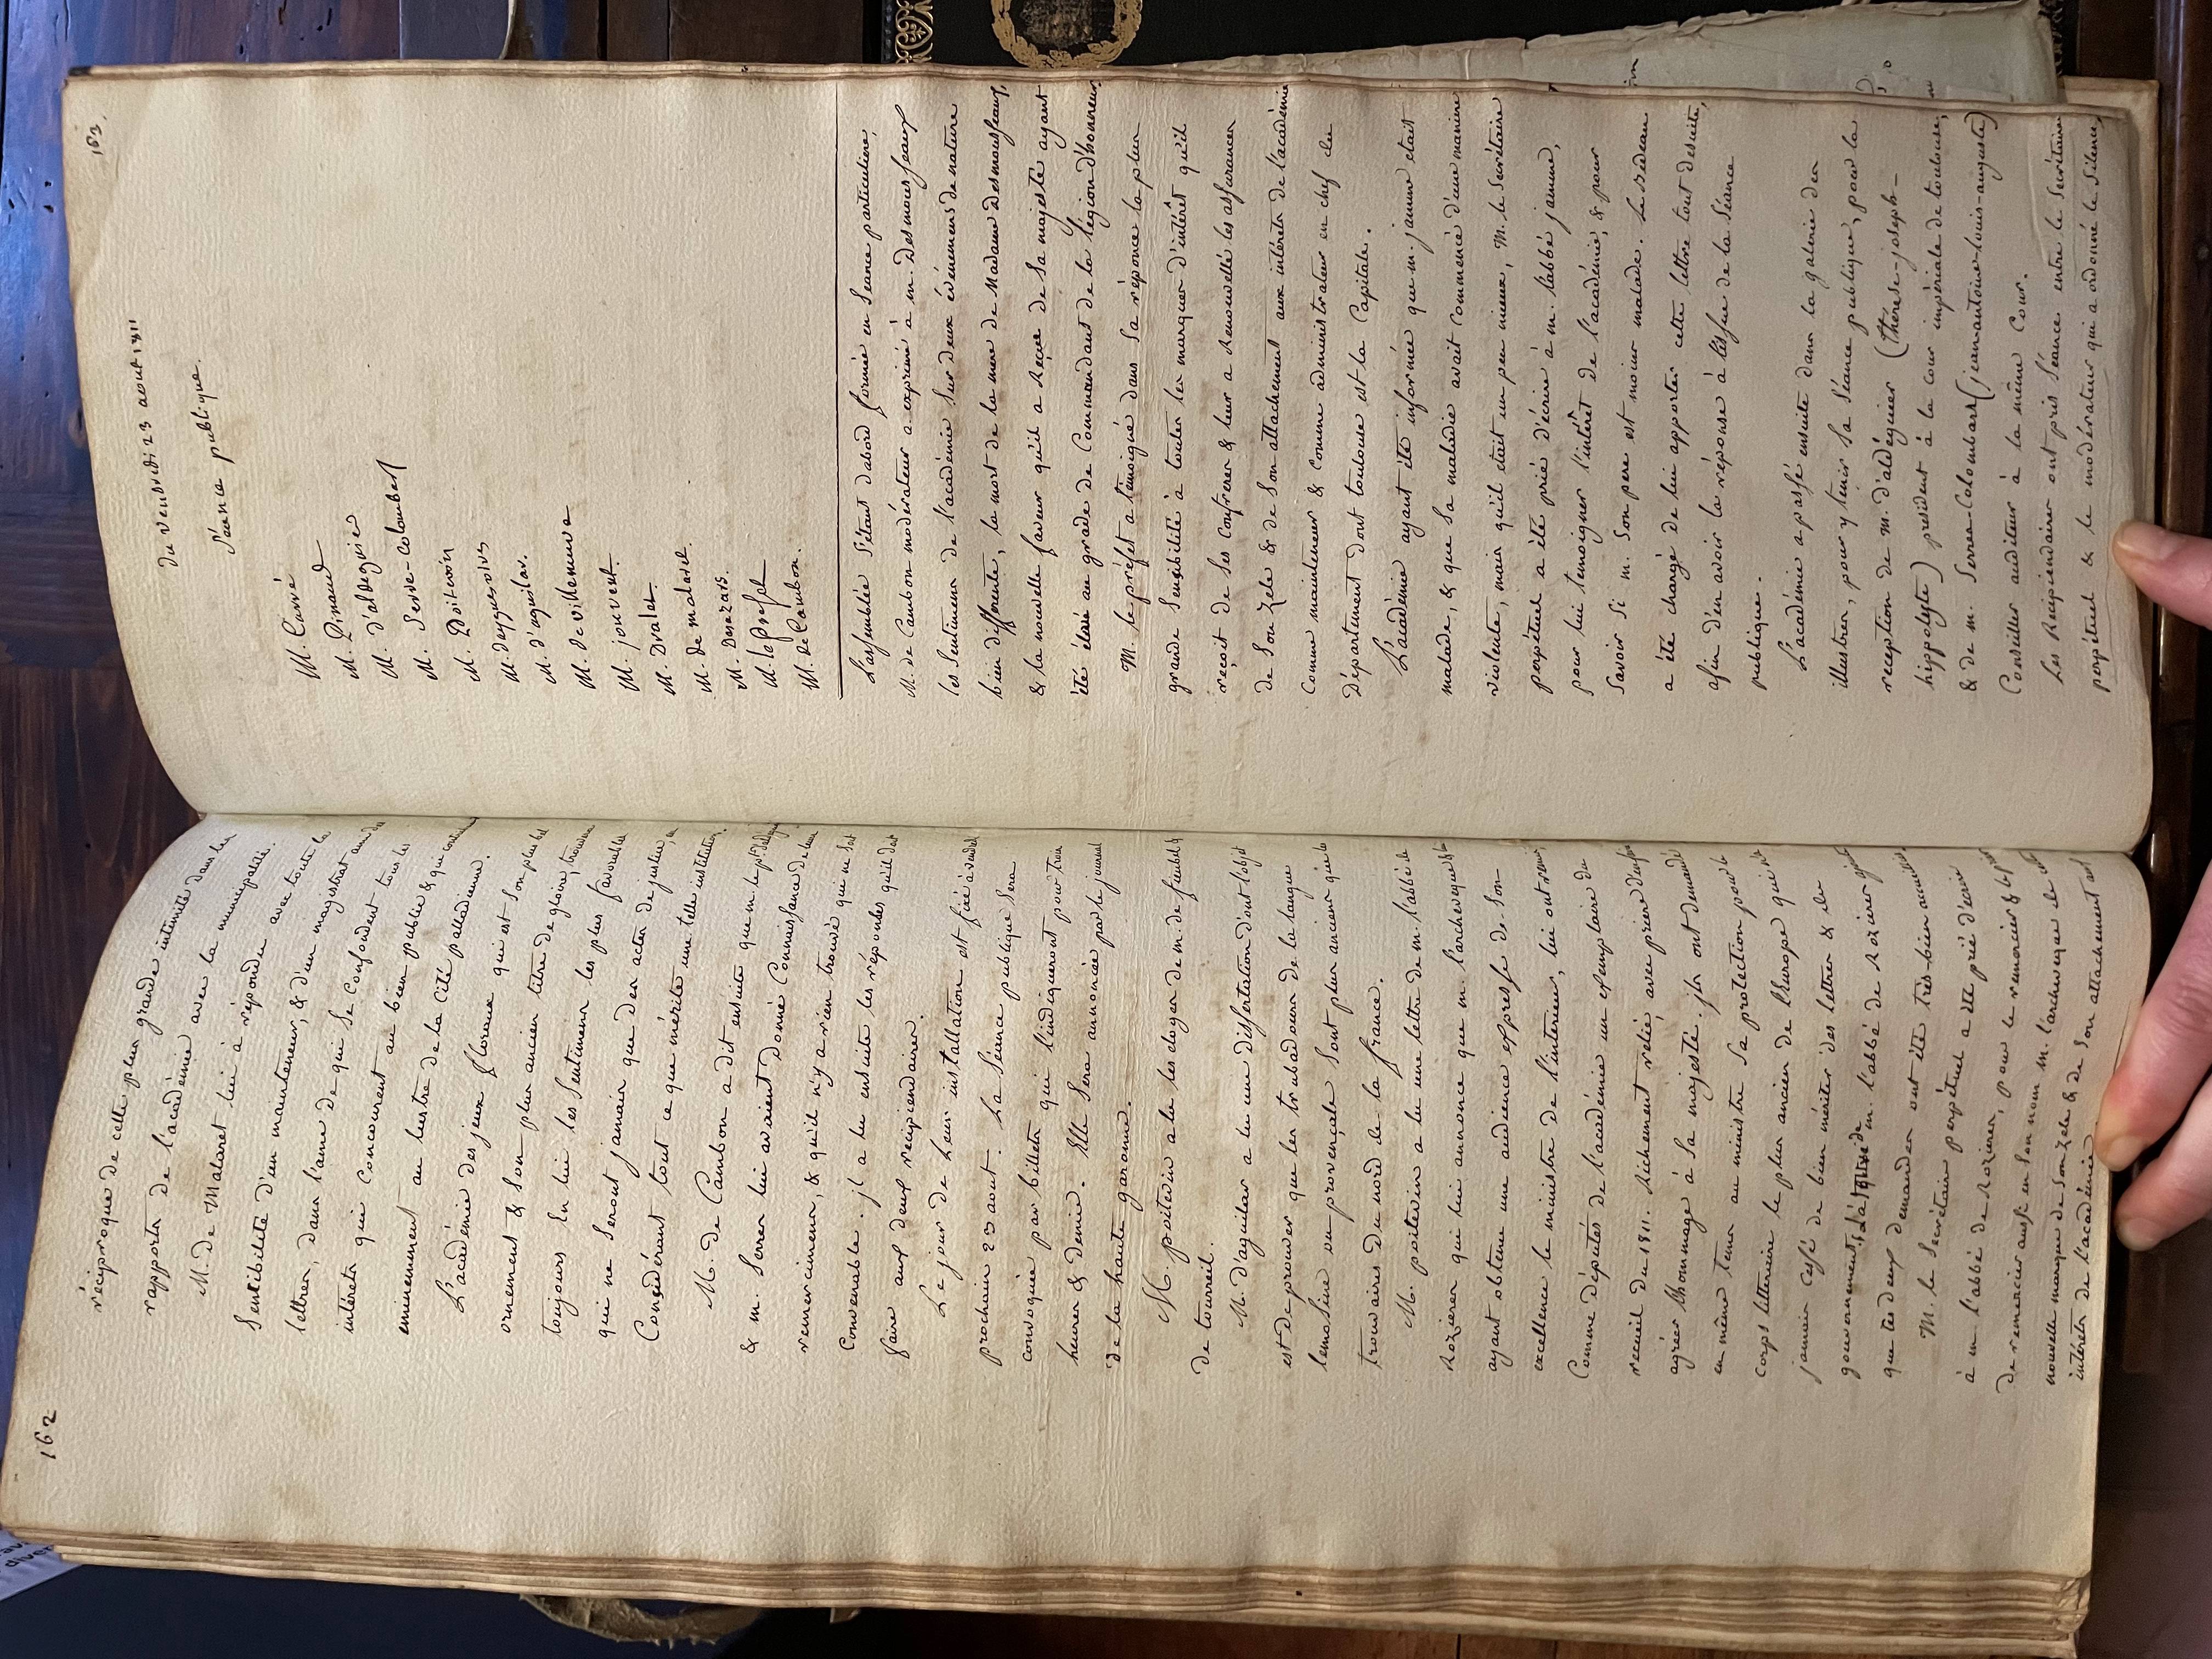 162
réciproque de cette plus grande intimité dans les
rapports de l'académie avec la municipalité.
M. de Malaret lui a répondu avec toute la
Sensibilité d'un mainteneur, & d'un magistrat ami des
lettres, dans l'ame de qui se confondent tous les
intérêts qui concourent au bien public & qui
eminemment au lustre de la Cité palladienne.
L'académie des jeux floraux qui est son plus bel
ornement & son plus ancien titre de gloire, trouvera
toujours En lui les Sentimens les plus favorables
qui ne Seront jamais que des actes de justice,
Considérant tout ce que mérite une telle institution.
M. de Cambon a dit ensuite que m. le pt. daldeguier
& m. Serres lui avoient donné Connaissance de leurs
remercimens, & qu'il n'y a rien trouvé qui ne Soit
Convenable. jl a lu ensuite les réponses qu'il doit
faire aux deux récipiendaires.
Le jour de leur installation est fixé à vendredi
prochain 23 aout. La Séance publique Sera
convoquée par billets qui l'indiqueront pour trois
heures & demie. Elle Sera annoncée par le journal
de la haute garonne.
M. poitevin a lu les éloges de m. de
de tourreil.
M. D'aguilar a lu une dissertation dont l'objet
est de prouver que les trubadours de la langue
lemosine ou provençale Sont plus anciens que les
trouvaires du nord de la france.
M. poitevin a lu une lettre de m. l'abbé de
Rozieres qui lui annonce que m. l'archevêque & lui
ayant obtenu une audience expresse de son
excellence le ministre de l'intérieur, lui ont remis,
Comme députés de l'académie un exemplaire du
recueil de 1811. Richement relié, avec priere d'en faire
agréer l'hommage à Sa majesté. jls ont demandé
en même tems au ministre Sa protection pour le
corps littéraire le plus ancien de l'Europe qui n'a
jamais Cessé de bien mériter des lettres & du
gouvernement. m. l'abbé de Rozieres
que ces deux demandes ont été très-bien accueillies.
M. le Secrétaire perpétuel a été prié d'écrire
à m. l'abbé de Rozieres, pour le remercier &
de remercier aussi en Son nom m. l'archevêque de cette
nouvelle marque de Son zèle & de Son attachement aux
intérêts de l'académie.
163.
Du vendredi 23 aout 1811
Séance publique.
M. Carré
M. Pinaud
M. d'aldeguier
M. Serre-Colombart
M. Poitevin
M. dayguesvives
M. d'aguilar.
M. de villeneuve
M. jouvent.
M. Dralet.
M. de malaret.
M. Desazars.
M. le Préfet
M. de Cambon.
L'assemblée S'étant d'abord formée en Séance particuliere,
M. de Cambon modérateur a exprimé à m. Desmousseaux
les Sentimens de l'académie Sur deux événemens de nature
bien différente, la mort de la mere de Madame Desmousseaux,
& la nouvelle faveur qu'il a Reçue de Sa majesté ayant
été élevé au grade de Commandant de la légion d'honneur
M. le préfet a témoigné dans Sa réponse la plus
grande Sensibilité à toutes les marques d'intérêt qu'il
reçoit de Ses Confreres & leur a Renouvellé les assurances
de Son zele & de Son attachement aux intérêts de l'académie
Comme mainteneur & Comme administrateur en chef du
Département dont toulouse est la Capitale.
L'académie ayant été informée que m. jamme etait
malade, & que Sa maladie avait Commencé d'une maniere
violente, mais qu'il etait un peu mieux, M. le Secrétaire
perpétuel a été prié d'écrire à m. l'abbé jamme,
pour lui temoigner l'intérêt de l'académie, & pour
Savoir Si m. Son pere est moins malade. Le Bedeau
a été chargé de lui apporter cette lettre tout desuite,
afin d'en avoir la réponse à l'issue de la Séance
publique.
L'académie a passé ensuite dans la galerie des
illustres, pour y tenir Sa Séance publique, pour la
reception de m. d'aldéguier (thérèse-joseph-
hippolyte) president à la cour impériale de toulouse,
& de m. Serres-Colombars (jean-antoine-louis-auguste)
Conseiller auditeur à la même Cour.
Les Récipiendaires ont pris Séance entre le Secrétaire
perpétuel & le modérateur qui a ordonné le Silence,